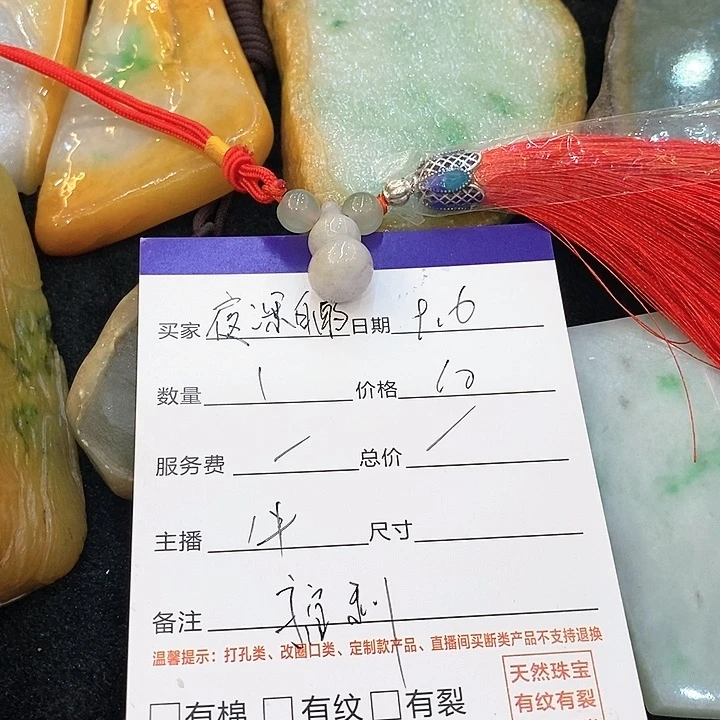 买家 夜深 日期 9.6
数量 1 价格 10
服务费 / 总价 /
主播 尺寸
备注
温馨提示：打孔类、改圈口类、定制款产品、直播间买断类产品不支持退换
□有棉 □有纹 □有裂
天然珠宝
有纹有裂